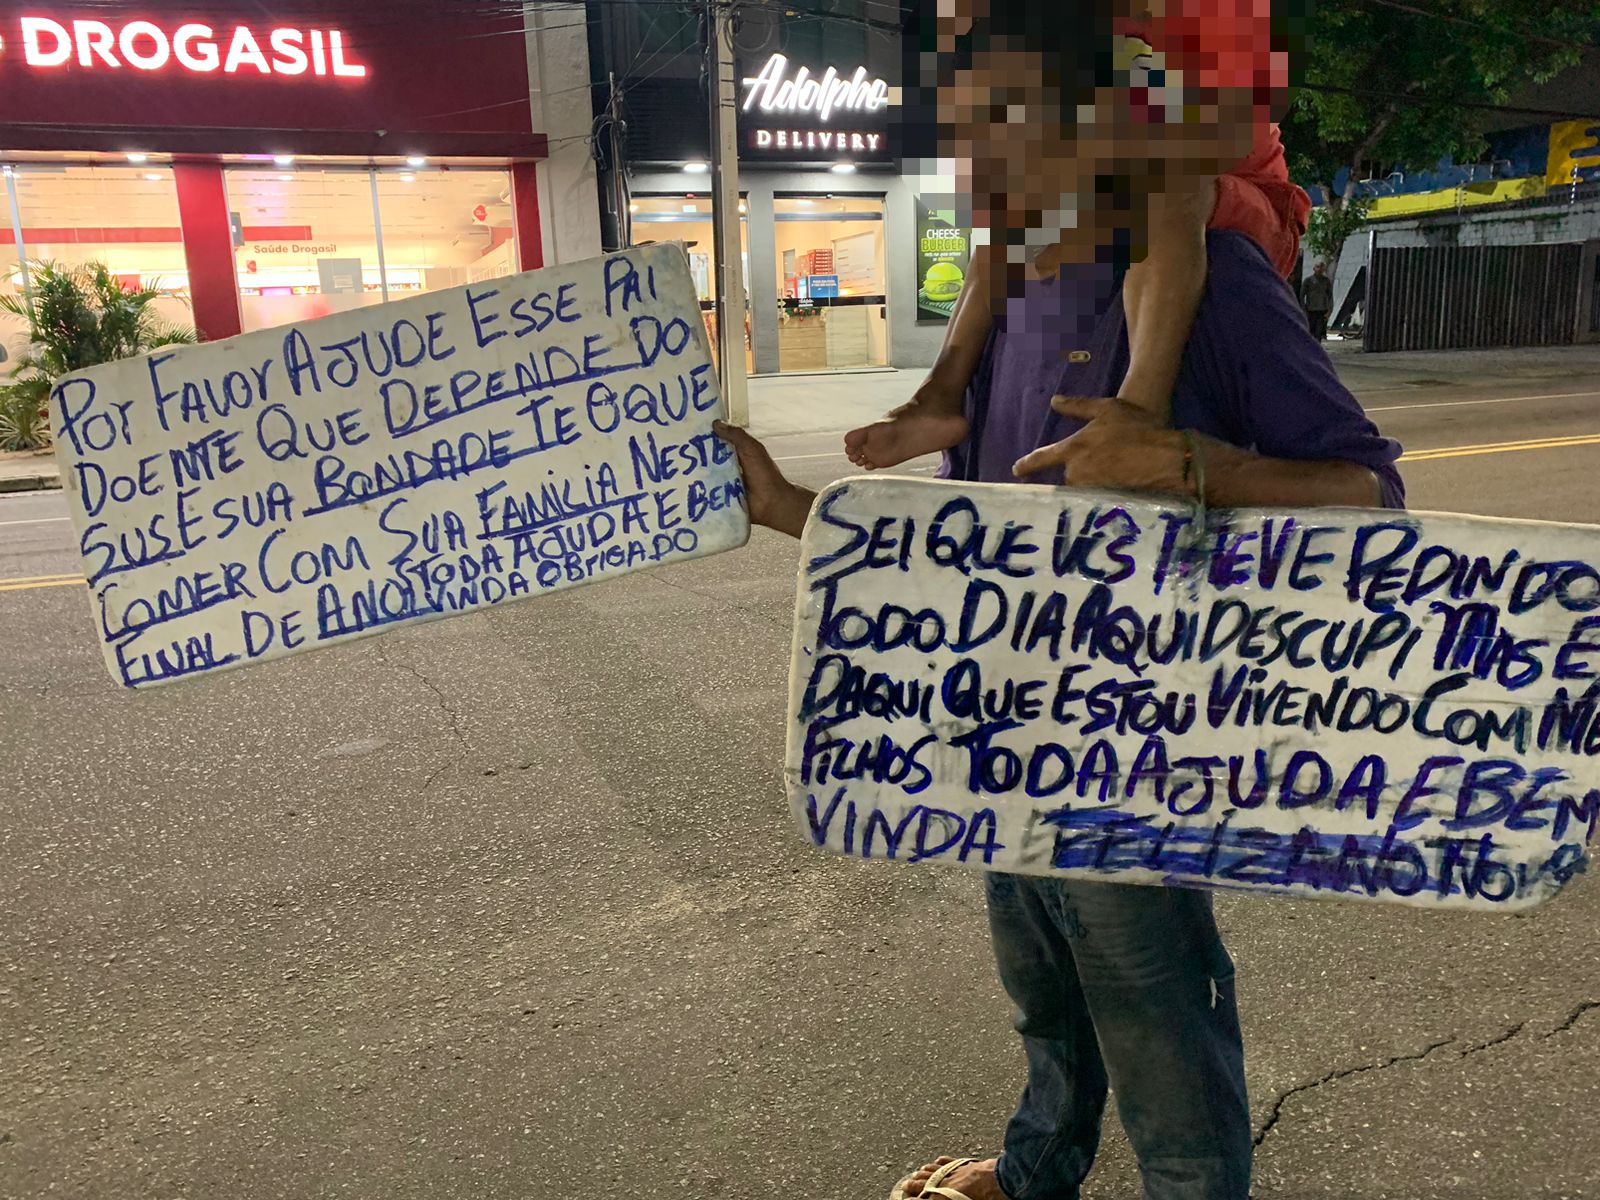 DROGASIL
Adolpho
DELIVERY
Saúde Drogasil
CHEESE
BURGER
POR FAVOR AJUDE ESSE PAI
DOENTE QUE DEPENDE DO
SUS E SUA BONDADE TE O QUE
COMER COM SUA FAMILIA NESTE
FINAL DE ANO TODA AJUDA E BEM
VINDA OBRIGADO
SEI QUE VÊS TIVEVE PEDINDO
TODO DIA AQUI DESCUPI MAS E
DAQUI QUE ESTOU VIVENDO COM ME
FILHOS TODA AJUDA E BEM
VINDA FELIZ ANO NOVO